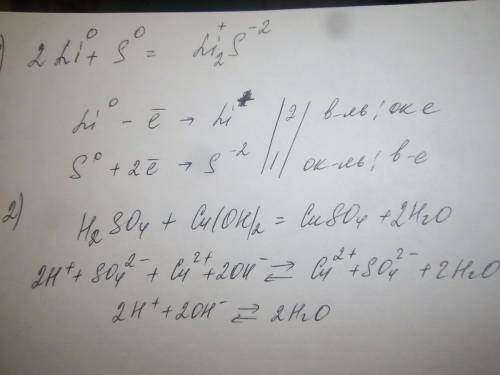 ) 2Li⁰ + S⁰ = Li₂⁺S⁻²
Li⁰ – ē → Li⁺ | 2 | в-ль; ок-е
S⁰ + 2ē → S⁻² | 1 | ок-ль; в-е
2) H₂SO₄ + Cu(OH)₂ = CuSO₄ + 2H₂O
2H⁺ + SO₄²⁻ + Cu²⁺ + 2OH⁻ ⇄ Cu²⁺ + SO₄²⁻ + 2H₂O
2H⁺ + 2OH⁻ ⇄ 2H₂O